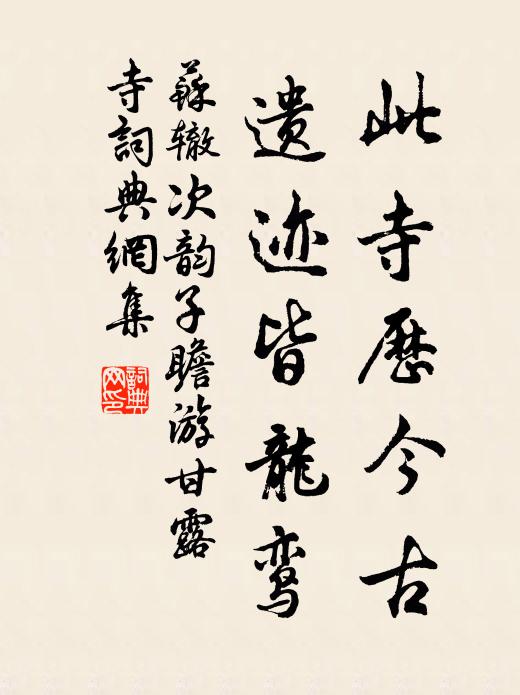 此寺歷今古
遗迹皆龍鸾
蘇辙次韵子瞻游甘露
寺詞典網集
詞典
网印